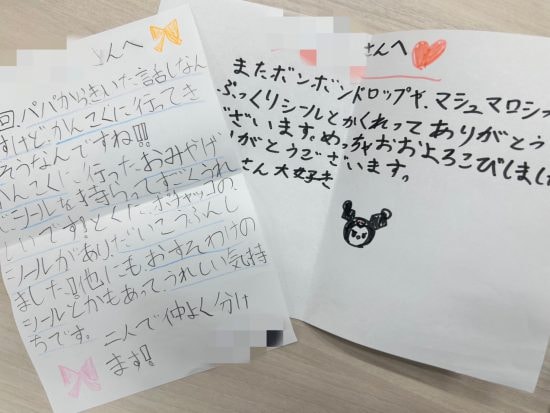 んへ
回、パパからきいた話しなん
すけど、かんこくに行ってき
そうなんですね!!!
かんこくに行ったおみやげ
シールを持らってすごくうれ
しいです!とくに、ポチャッコの、
シールがありだいこうふんし
ました!!他にも、おすそわけの
シールとかもあって、うれしい気持
ちです。
二人で仲よく分け
ます!
さんへ
またボンボンドロップや、マシュマロシー
ぷっくりシールとかくれってありがとう
ございます。めっちゃおおよろこびしまし
がとうございます。
さん大好き